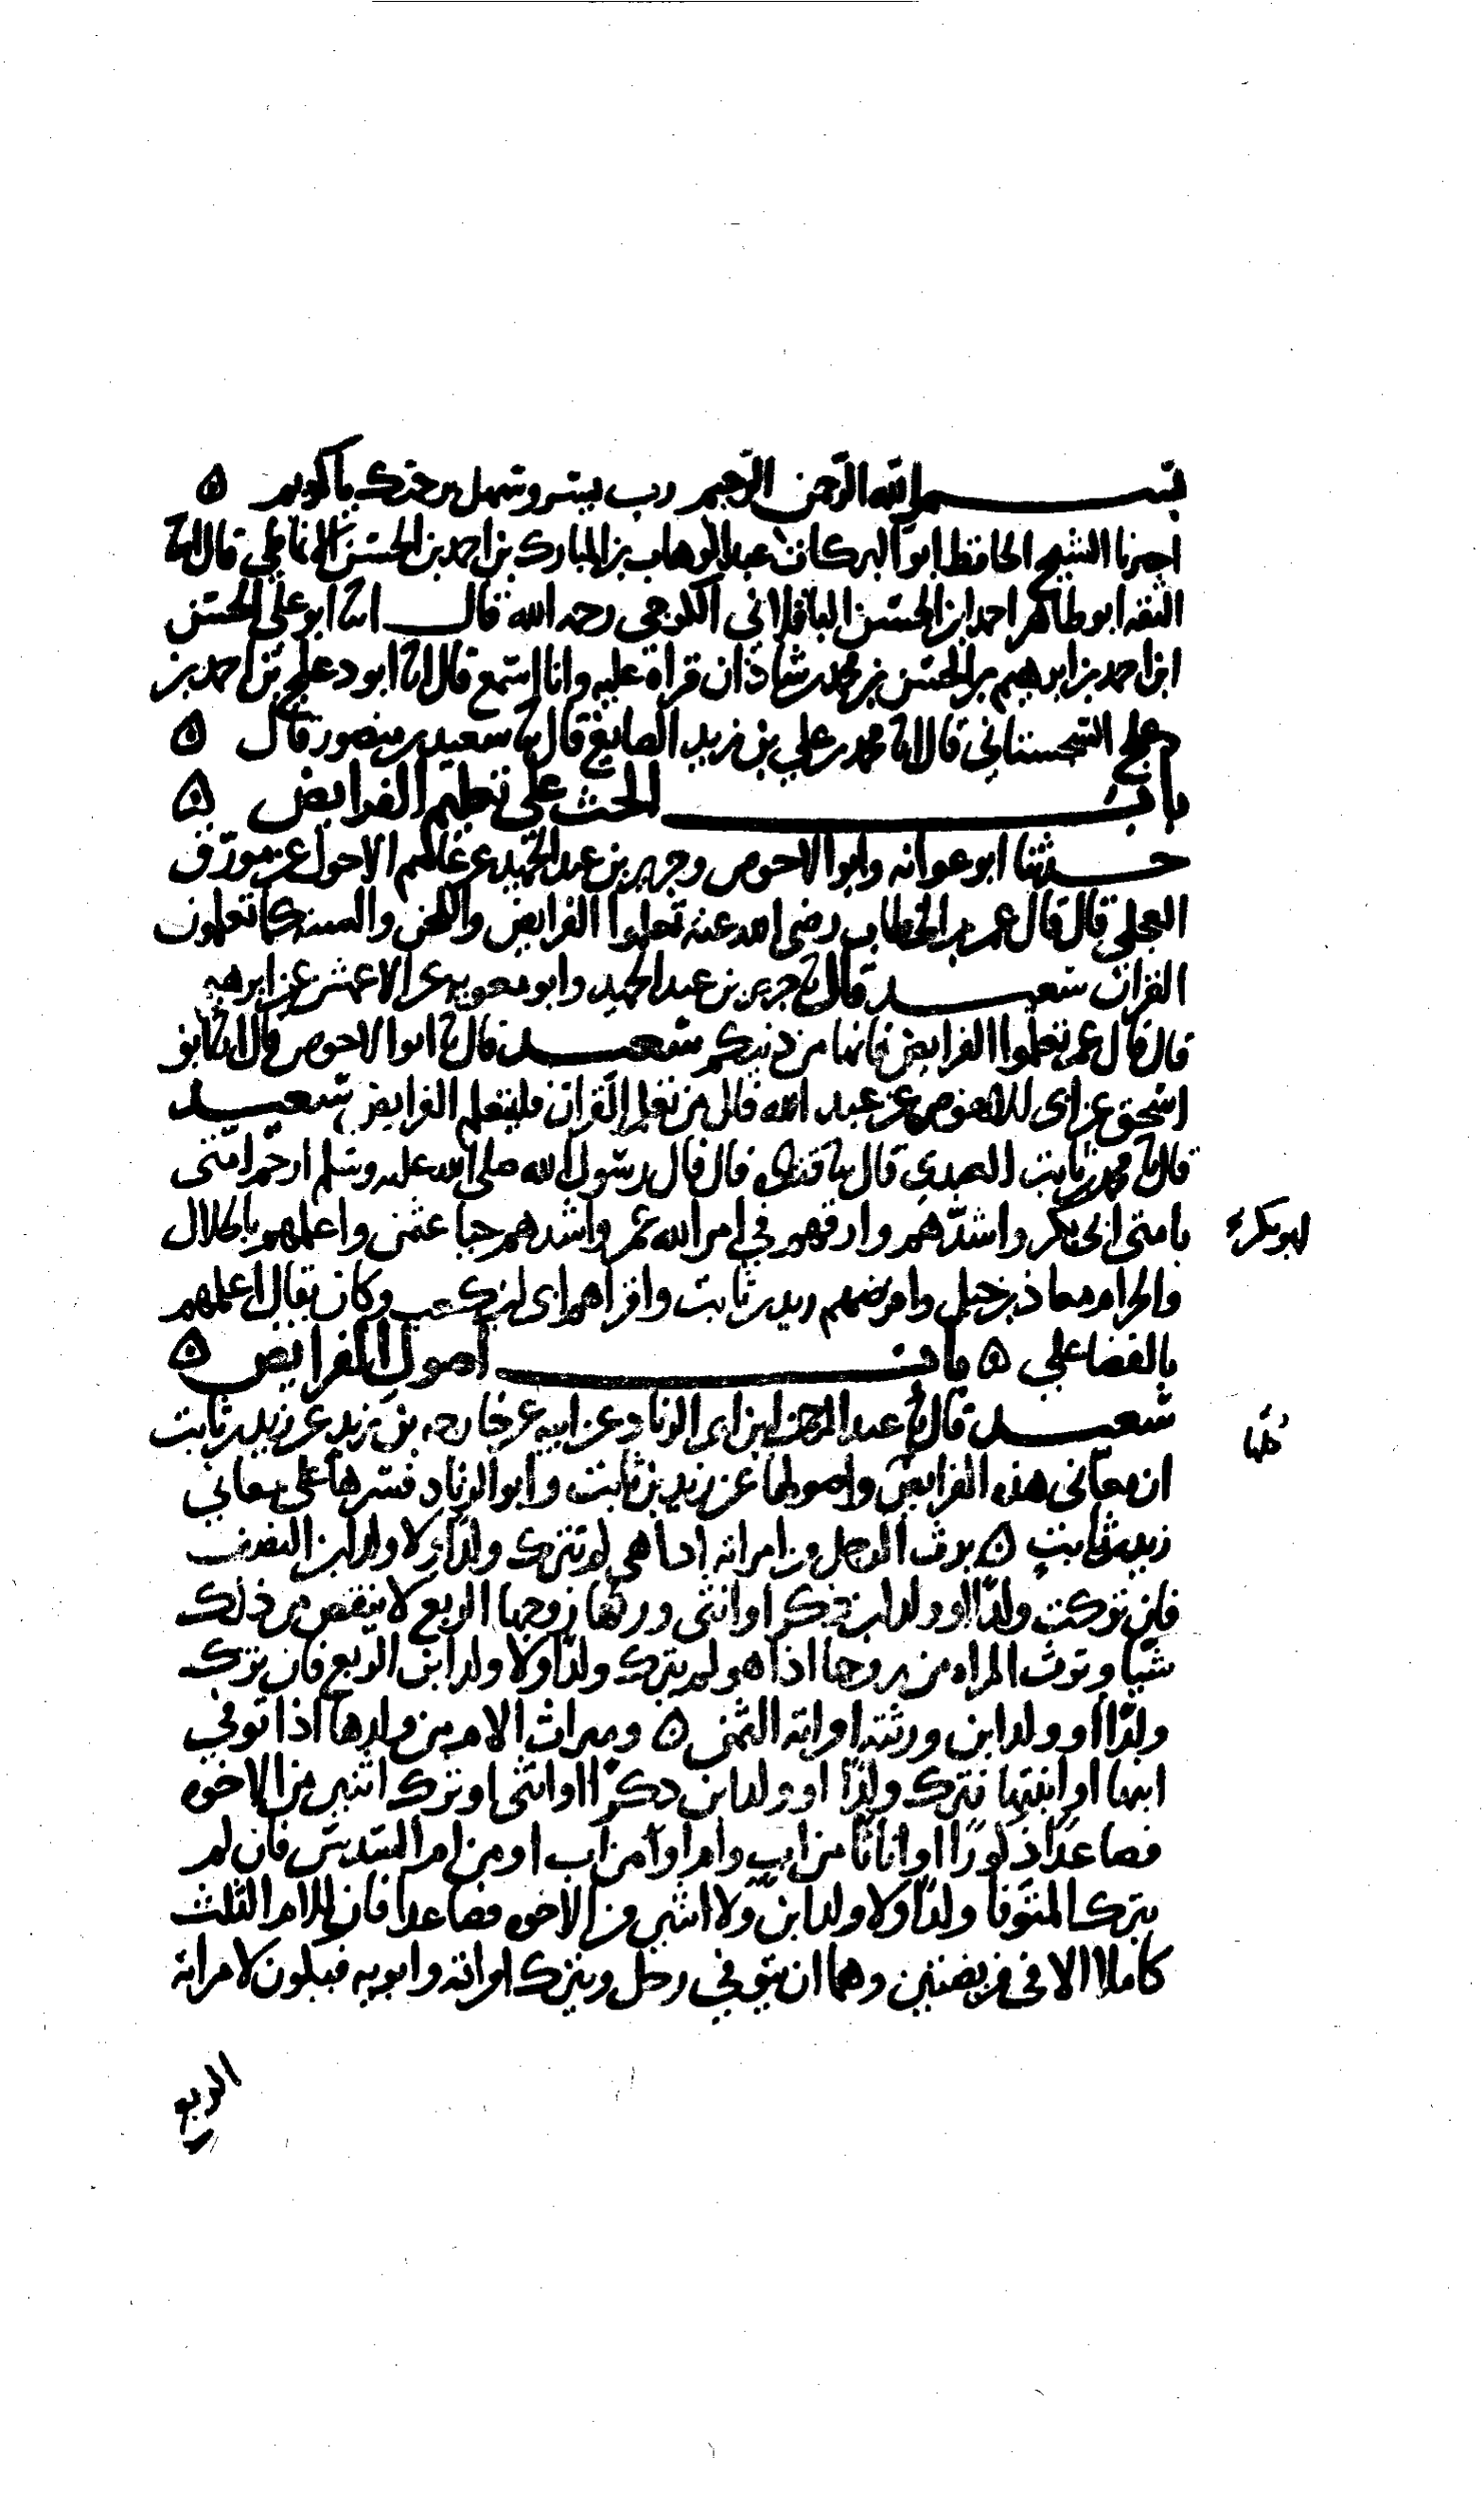 بسم الله الرحمن الرحيم رب يسر وسهل برحمتك يا كريم ه
اخبرنا الشيخ الحافظ ابو البركات عبد الوهاب بن المبارك بن احمد بن الحسن الانماطي قال انا
الثقه ابو طاهر احمد ابن الحسن الباقلاني الكرجي رحمه الله قال انا ابو علي الحسن
ابن احمد بن ابرهيم بن الحسن بن محمد بن شاذان قراة عليه وانا اسمع قال انا ابو دعلج بن احمد بن
دعلج السجستاني قال انا محمد بن علي بن زيد الصايغ قال نا سعيد بن منصور قال ه
باب الحث على تعليم الفرايض ه
حدثنا ابو عوانه وابو الاحوص وجرير بن عبد الحميد عن عاصم الاحول عن مورق
العجلي قال قال عمر بن الخطاب رضي الله عنه تعلموا الفرايض واللحن والسنه كما تعلمون
القران سعيد قال نا جرير بن عبد الحميد وابو معويه عن الاعمش عن ابرهيم
قال قال عمر تعلموا الفرايض فانها من دينكم سعيد قال نا ابو الاحوص قال انا ابو
اسحق عن ابي الاحوص عن عبد الله قال من تعلم القران فليتعلم الفرايض سعيد
قال نا محمد بن ثابت العبدي قال نا قتاده قال قال رسول الله صلى الله عليه وسلم ارحم امتي
بامتي ابي بكر واشدهم وارقهم في امر الله عمر واشدهم حيا عثمن واعلمهم بالحلال
ابو بكر
والحرام معاذ بن جبل وافرضهم زيد بن ثابت واقراهم ابي بن كعب وكان يقال اعلمهم
بالقضا علي ه باب اصول الفرايض ه
سعيد قال نا عبد الرحمن ابن ابي الزناد عن ابيه عن خارجه بن زيد عن زيد بن ثابت
ان معاني هذه الفرايض واصولها عن زيد بن ثابت وابو الزناد فسرها على معاني
زيد بن ثابت ه يرث الرجل من امراته اذا هي لم تترك ولدا ولا ولد ابن النصف
فان تركت ولدا او ولد ابن ذكر او انثى ورثها زوجها الربع لا ينقص من ذلك
شيا وترث المراه من زوجها اذا هو لم يترك ولدا ولا ولد ابن الربع فان ترك
ولدا او ولد ابن ورثته امراته الثمن ه وميراث الام من ولدها اذا توفي
ابنها او ابنتها فترك ولدا او ولد ابن ذكرا او انثى او ترك اثنين من الاخوه
فصاعدا ذكورا او اناثا من اب وام او من اب او من ام السدس فان لم
يترك المتوفا ولدا ولا ولد ابن ولا اثنين من الاخوه فصاعدا فان للام الثلث
كاملا الا في فريضتين وهما ان يتوفي رجل ويترك امراته وابويه فيكون لامراته
الربع